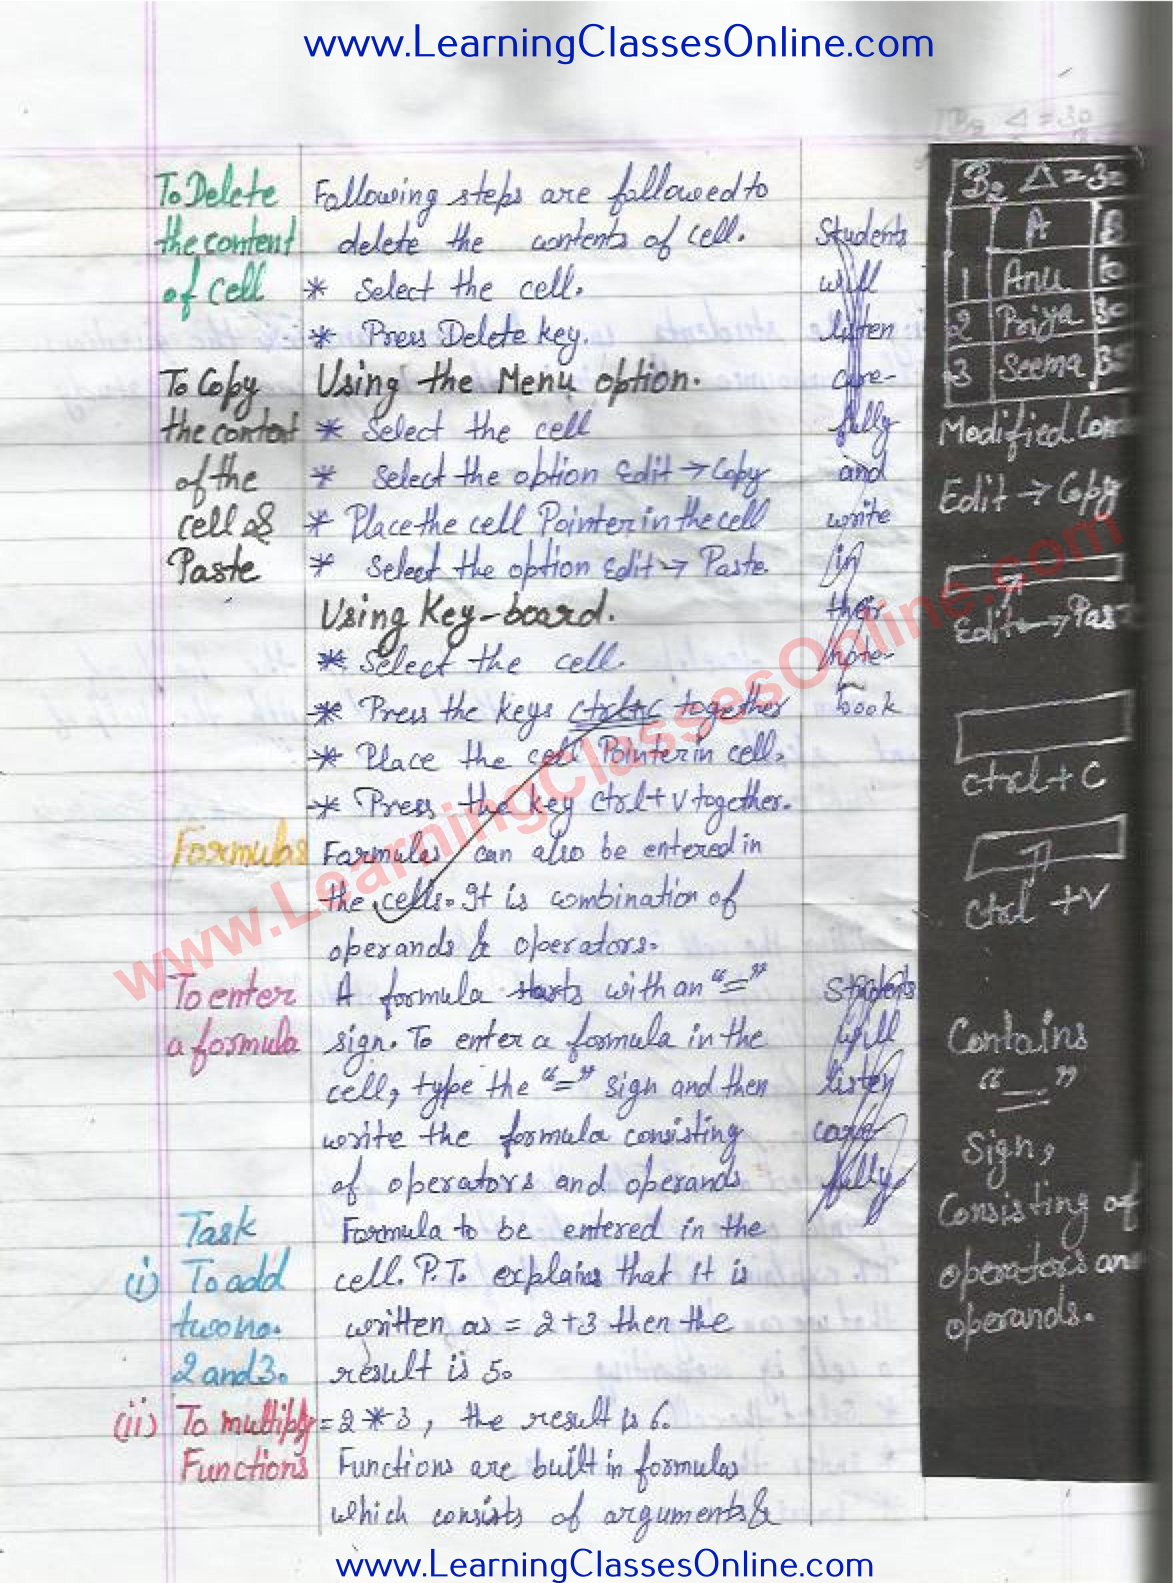 www.LearningClassesOnline.com
To Delete
the content
of cell
Following steps are followed to
delete the contents of cell.
* Select the cell.
* Press Delete key.
To Copy
the content
of the
cell &
Paste
Using the Menu option.
* Select the cell
* Select the option Edit → Copy
* Place the cell Pointer in the cell
* Select the option Edit → Paste.
Using Key-board.
* Select the cell.
* Press the keys ctrl+c together
* Place the cell Pointer in cell.
* Press the key ctrl+v together.
Students
will
listen
care-
fully
and
write
in
their
note-
book
Formulas
Formulas can also be entered in
the cells. It is combination of
operands & operators.
To enter
a formula
A formula starts with an "="
sign. To enter a formula in the
cell, type the "=" sign and then
write the formula consisting
of operators and operands
Students
will
listen
care-
fully
Task
(i) To add
two no.
2 and 3.
Formula to be entered in the
cell. P.T. explains that it is
written as = 2+3 then the
result is 5.
(ii) To multiply
= 2*3, the result is 6.
Functions
Functions are built in formulas
which consists of arguments &
B2 Δ = 30
B2 Δ = 30
A B
1 Anu 10
2 Priya 30
3 Seema 35
Modified Cont
Edit → Copy
Edit → Past
ctrl + C
ctrl + V
Contains
"="
Sign,
Consisting of
operators and
operands.
www.LearningClassesOnline.com
www.LearningClassesOnline.com